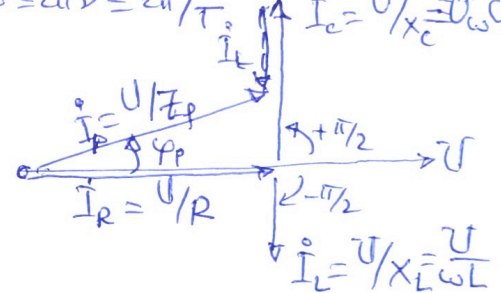 = 2πν = 2π/T
İ_C = U/X_C = UωC
İ_L
İ_P = U/Z_P
φ_P
+π/2
U
İ_R = U/R
-π/2
İ_L = U/X_L = U/ωL